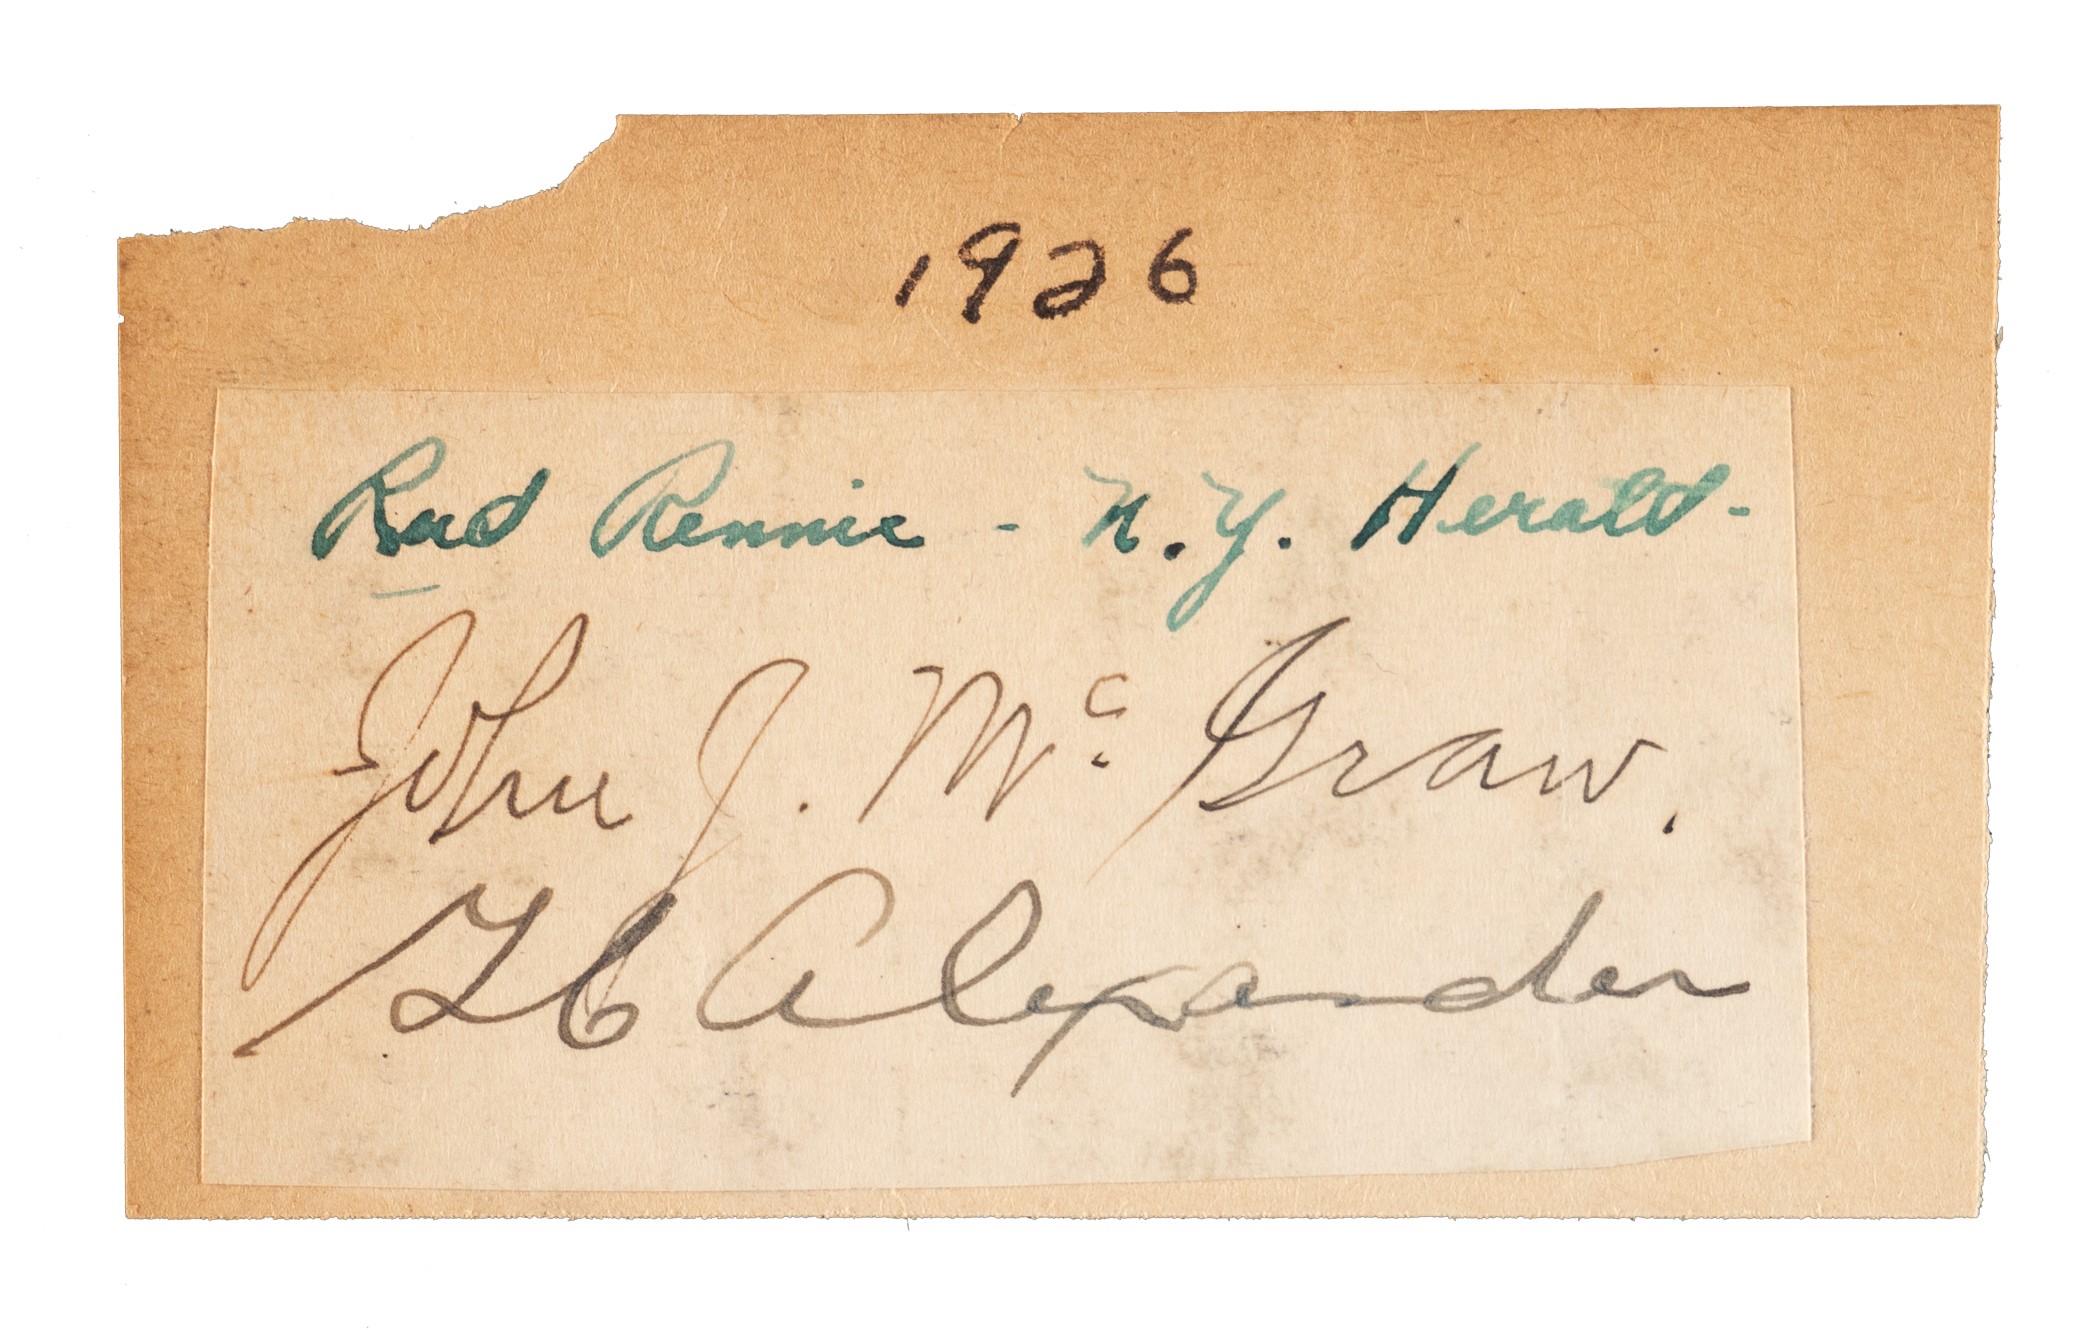 1926
Rud Rennie - N.Y. Herald-
John J. Mc Graw.
G C Alexander